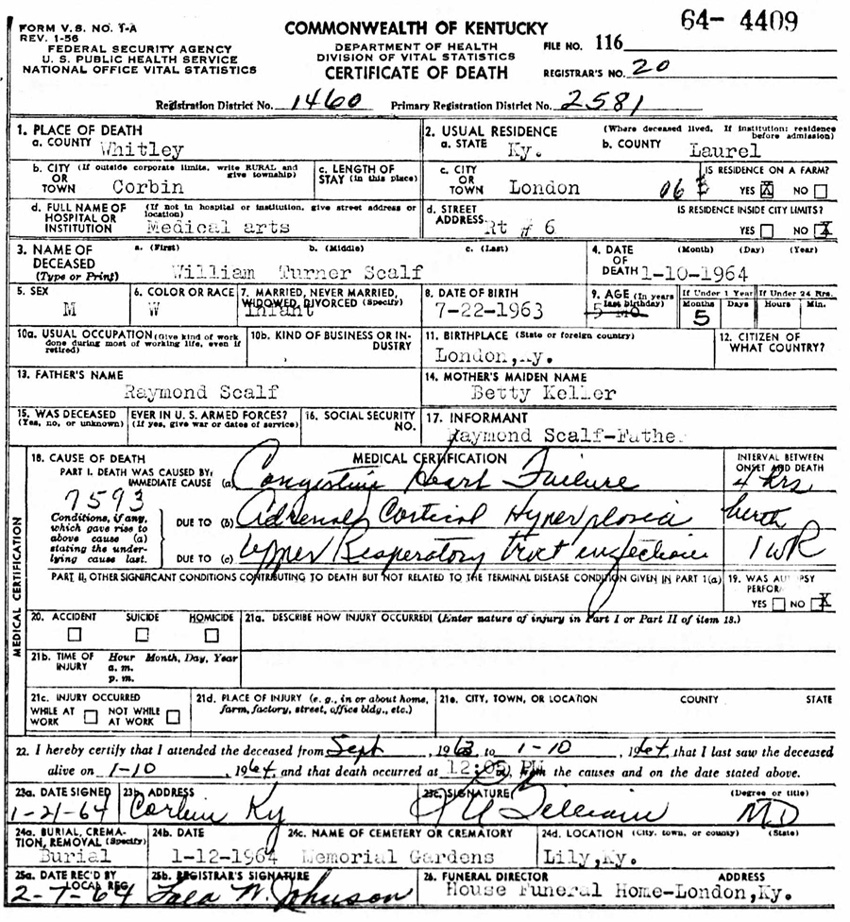 FORM V.S. NO. 1-A
REV. 1-56
FEDERAL SECURITY AGENCY
U. S. PUBLIC HEALTH SERVICE
NATIONAL OFFICE VITAL STATISTICS
COMMONWEALTH OF KENTUCKY
DEPARTMENT OF HEALTH
DIVISION OF VITAL STATISTICS
CERTIFICATE OF DEATH
64- 4409
FILE NO. 116
REGISTRAR'S NO. 20
Registration District No. 1460 Primary Registration District No. 2581
1. PLACE OF DEATH
a. COUNTY Whitley
2. USUAL RESIDENCE (Where deceased lived. If institution: residence before admission)
a. STATE Ky. b. COUNTY Laurel
b. CITY OR TOWN (If outside corporate limits, write RURAL and give township) Corbin
c. LENGTH OF STAY (in this place)
c. CITY OR TOWN London
IS RESIDENCE ON A FARM?
YES X NO
d. FULL NAME OF HOSPITAL OR INSTITUTION (If not in hospital or institution, give street address or location) Medical arts
d. STREET ADDRESS Rt # 6
IS RESIDENCE INSIDE CITY LIMITS?
YES NO X
3. NAME OF DECEASED (Type or Print)
a. (First) b. (Middle) c. (Last)
William Turner Scalf
4. DATE OF DEATH (Month) (Day) (Year)
1-10-1964
5. SEX
M
6. COLOR OR RACE
W
7. MARRIED, NEVER MARRIED, WIDOWED, DIVORCED (Specify)
Infant
8. DATE OF BIRTH
7-22-1963
9. AGE (In years last birthday)
5 MO
If Under 1 Year Months Days
5
If Under 24 Hrs. Hours Min.
10a. USUAL OCCUPATION (Give kind of work done during most of working life, even if retired)
10b. KIND OF BUSINESS OR INDUSTRY
11. BIRTHPLACE (State or foreign country)
London, Ky.
12. CITIZEN OF WHAT COUNTRY?
13. FATHER'S NAME
Raymond Scalf
14. MOTHER'S MAIDEN NAME
Betty Keller
15. WAS DECEASED EVER IN U. S. ARMED FORCES?
(Yes, no, or unknown) (If yes, give war or dates of service)
16. SOCIAL SECURITY NO.
17. INFORMANT
Raymond Scalf-Father
MEDICAL CERTIFICATION
18. CAUSE OF DEATH
MEDICAL CERTIFICATION
INTERVAL BETWEEN ONSET AND DEATH
PART I. DEATH WAS CAUSED BY:
IMMEDIATE CAUSE (a) Congestive Heart Failure 4 hrs
7593
Conditions, if any, which gave rise to above cause (a) stating the underlying cause last.
DUE TO (b) Adrenal Cortical Hyperplasia birth
DUE TO (c) Upper Respiratory tract infection 1 wk
PART II. OTHER SIGNIFICANT CONDITIONS CONTRIBUTING TO DEATH BUT NOT RELATED TO THE TERMINAL DISEASE CONDITION GIVEN IN PART I(a)
19. WAS AUTOPSY PERFOR
YES NO X
20. ACCIDENT SUICIDE HOMICIDE
21a. DESCRIBE HOW INJURY OCCURRED! (Enter nature of injury in Part I or Part II of item 18.)
21b. TIME OF INJURY Hour Month, Day, Year
a. m.
p. m.
21c. INJURY OCCURRED
WHILE AT WORK NOT WHILE AT WORK
21d. PLACE OF INJURY (e. g., in or about home, farm, factory, street, office bldg., etc.)
21e. CITY, TOWN, OR LOCATION COUNTY STATE
22. I hereby certify that I attended the deceased from Sept, 1963 to 1-10, 1964, that I last saw the deceased
alive on 1-10, 1964, and that death occurred at 12:05 PM, from the causes and on the date stated above.
23a. DATE SIGNED
1-21-64
23b. ADDRESS
Corbin Ky
23c. SIGNATURE (Degree or title)
MD
24a. BURIAL, CREMATION, REMOVAL (Specify)
Burial
24b. DATE
1-12-1964
24c. NAME OF CEMETERY OR CREMATORY
Memorial Gardens
24d. LOCATION (City, town, or county) (State)
Lily, Ky.
25a. DATE REC'D BY LOCAL REG.
2-7-64
25b. REGISTRAR'S SIGNATURE
W. Johnson
26. FUNERAL DIRECTOR ADDRESS
House Funeral Home-London, Ky.